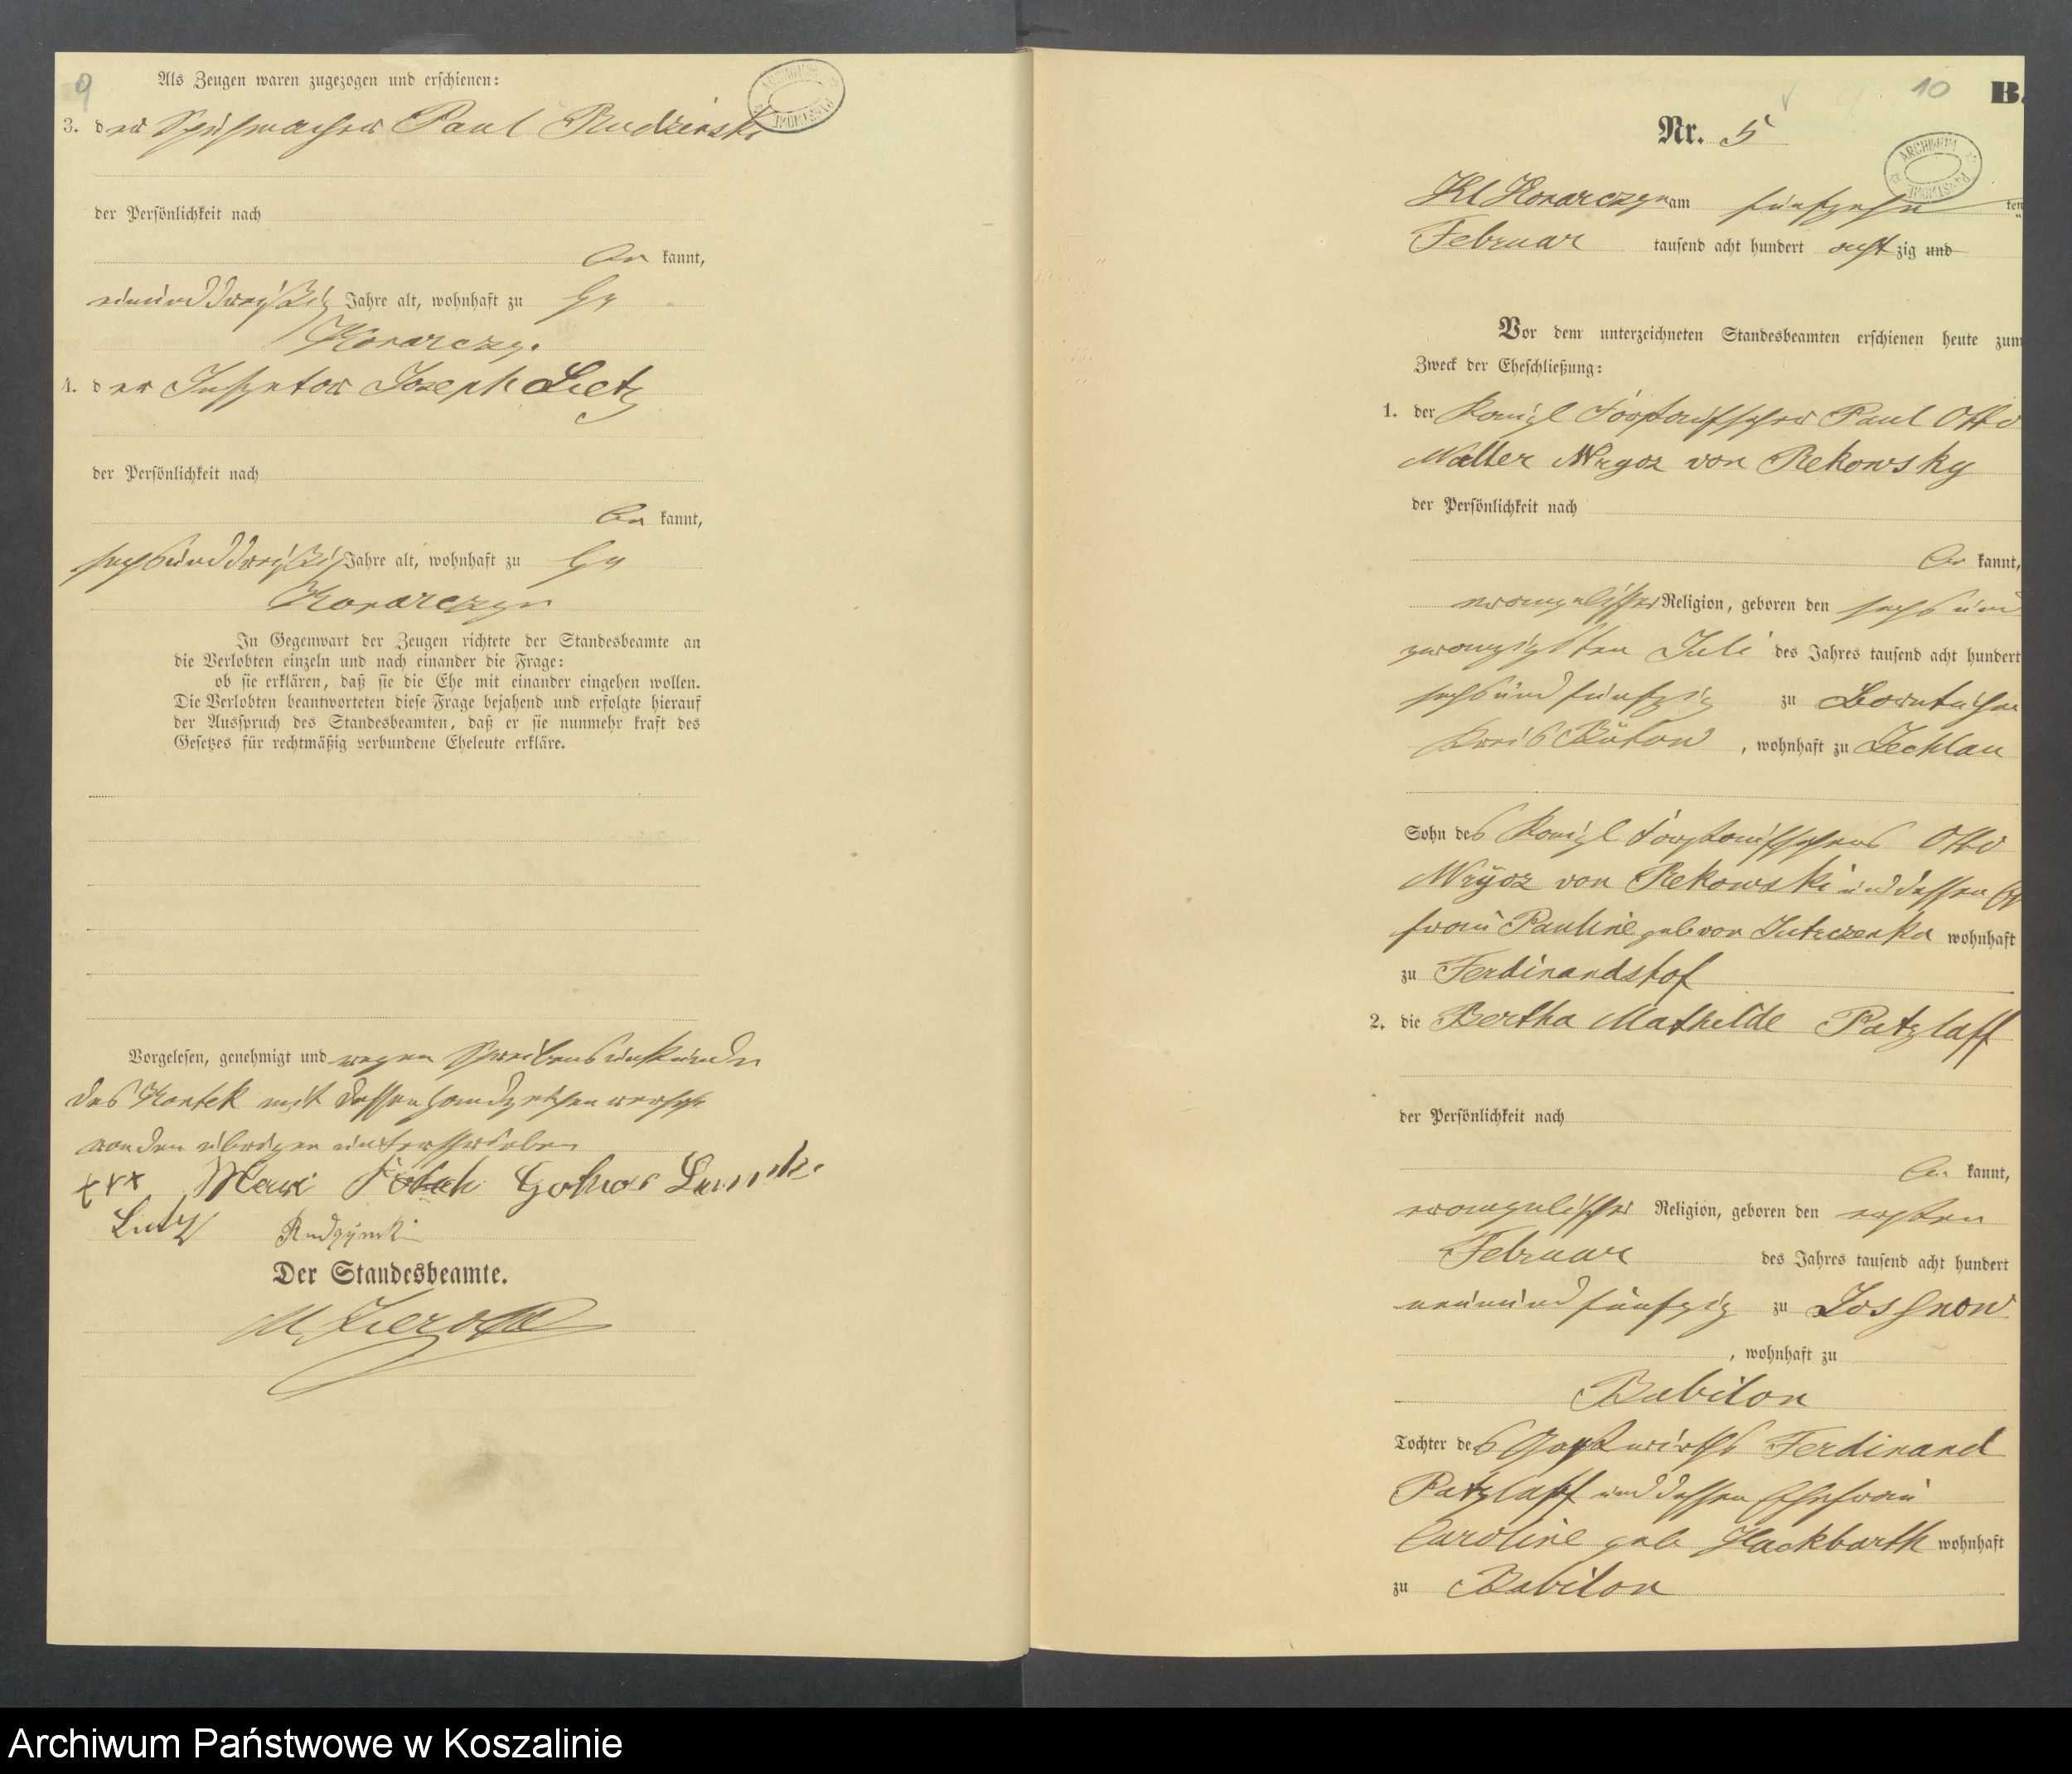 9
Als Zeugen waren zugezogen und erschienen:
3. der Schuhmacher Paul Rudzinski
der Persönlichkeit nach
be kannt,
einunddreißig Jahre alt, wohnhaft zu Gr
Konarczyn
4. der Inspektor Joseph Lietz
der Persönlichkeit nach
be kannt,
sechsunddreißig Jahre alt, wohnhaft zu Gr
Konarczyn
In Gegenwart der Zeugen richtete der Standesbeamte an
die Verlobten einzeln und nach einander die Frage:
ob sie erklären, daß sie die Ehe mit einander eingehen wollen.
Die Verlobten beantworteten diese Frage bejahend und erfolgte hierauf
der Ausspruch des Standesbeamten, daß er sie nunmehr kraft des
Gesetzes für rechtmäßig verbundene Eheleute erkläre.
Vorgelesen, genehmigt und wegen Schreibensunkunde
des Kontek mit dessen Handzeichen versehen
von den übrigen unterschrieben
+++
Lietz Rudzinski
Der Standesbeamte.
ARCHIWUM PAŃSTWOWE
10
B.
Nr. 5
ARCHIWUM PAŃSTWOWE
Kl Konarczyn am fünfzehn ten
Februar tausend acht hundert acht zig und
Vor dem unterzeichneten Standesbeamten erschienen heute zum
Zweck der Eheschließung:
1. der Königl Forstaufseher Paul Otto
Walter Wrycz von Rekowsky
der Persönlichkeit nach
be kannt,
evangelischer Religion, geboren den sechs und
zwanzigsten Juli des Jahres tausend acht hundert
sechsundfünfzig zu Borntuchen
Kreis Bütow, wohnhaft zu Zechlau
Sohn des Königl Forstaufsehers Otto
Wrycz von Rekowski und dessen Ehe
frau Pauline geb von Jutrczenka wohnhaft
zu Ferdinandshof
2. die Bertha Mathilde Patzlaff
der Persönlichkeit nach
be kannt,
evangelischer Religion, geboren den ersten
Februar des Jahres tausend acht hundert
neunundfünfzig zu Lossnow
, wohnhaft zu
Babilon
Tochter des Gastwirths Ferdinand
Patzlaff und dessen Ehefrau
Caroline geb Hackbarth wohnhaft
zu Babilon
Archiwum Państwowe w Koszalinie